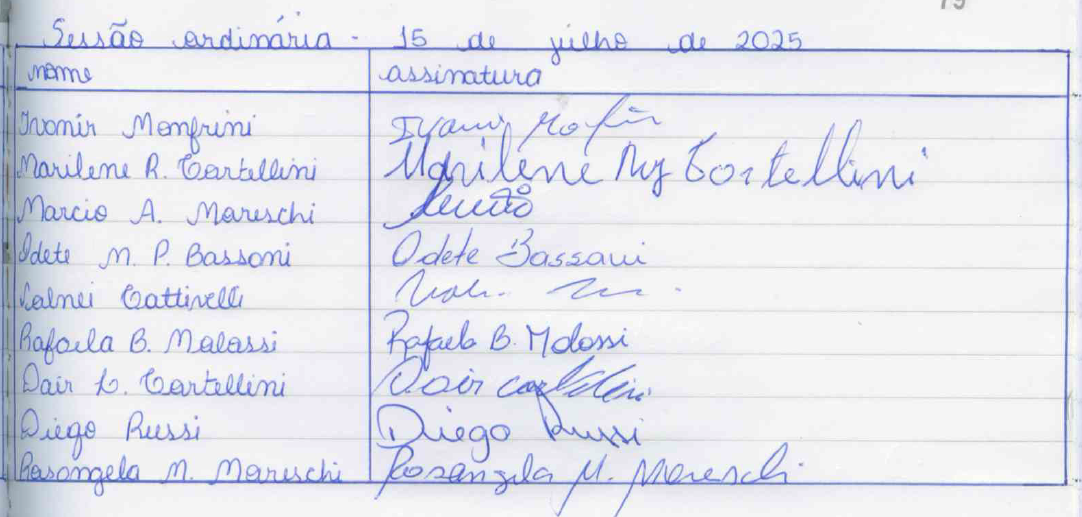 19
Sessão ordinária - 15 de julho de 2025
nome assinatura
Ivonir Monfrini
Marilene R. Cortellini Marilene Cortellini
Marcio A. Mareschi
Odete M. P. Bassoni Odete Bassani
Valnei Cattivelli
Rafaela B. Malossi Rafaela B. Molossi
Dair L. Cortellini Dair
Diego Russi Diego Russi
Rosangela M. Mareschi Rosangela M. Mareschi